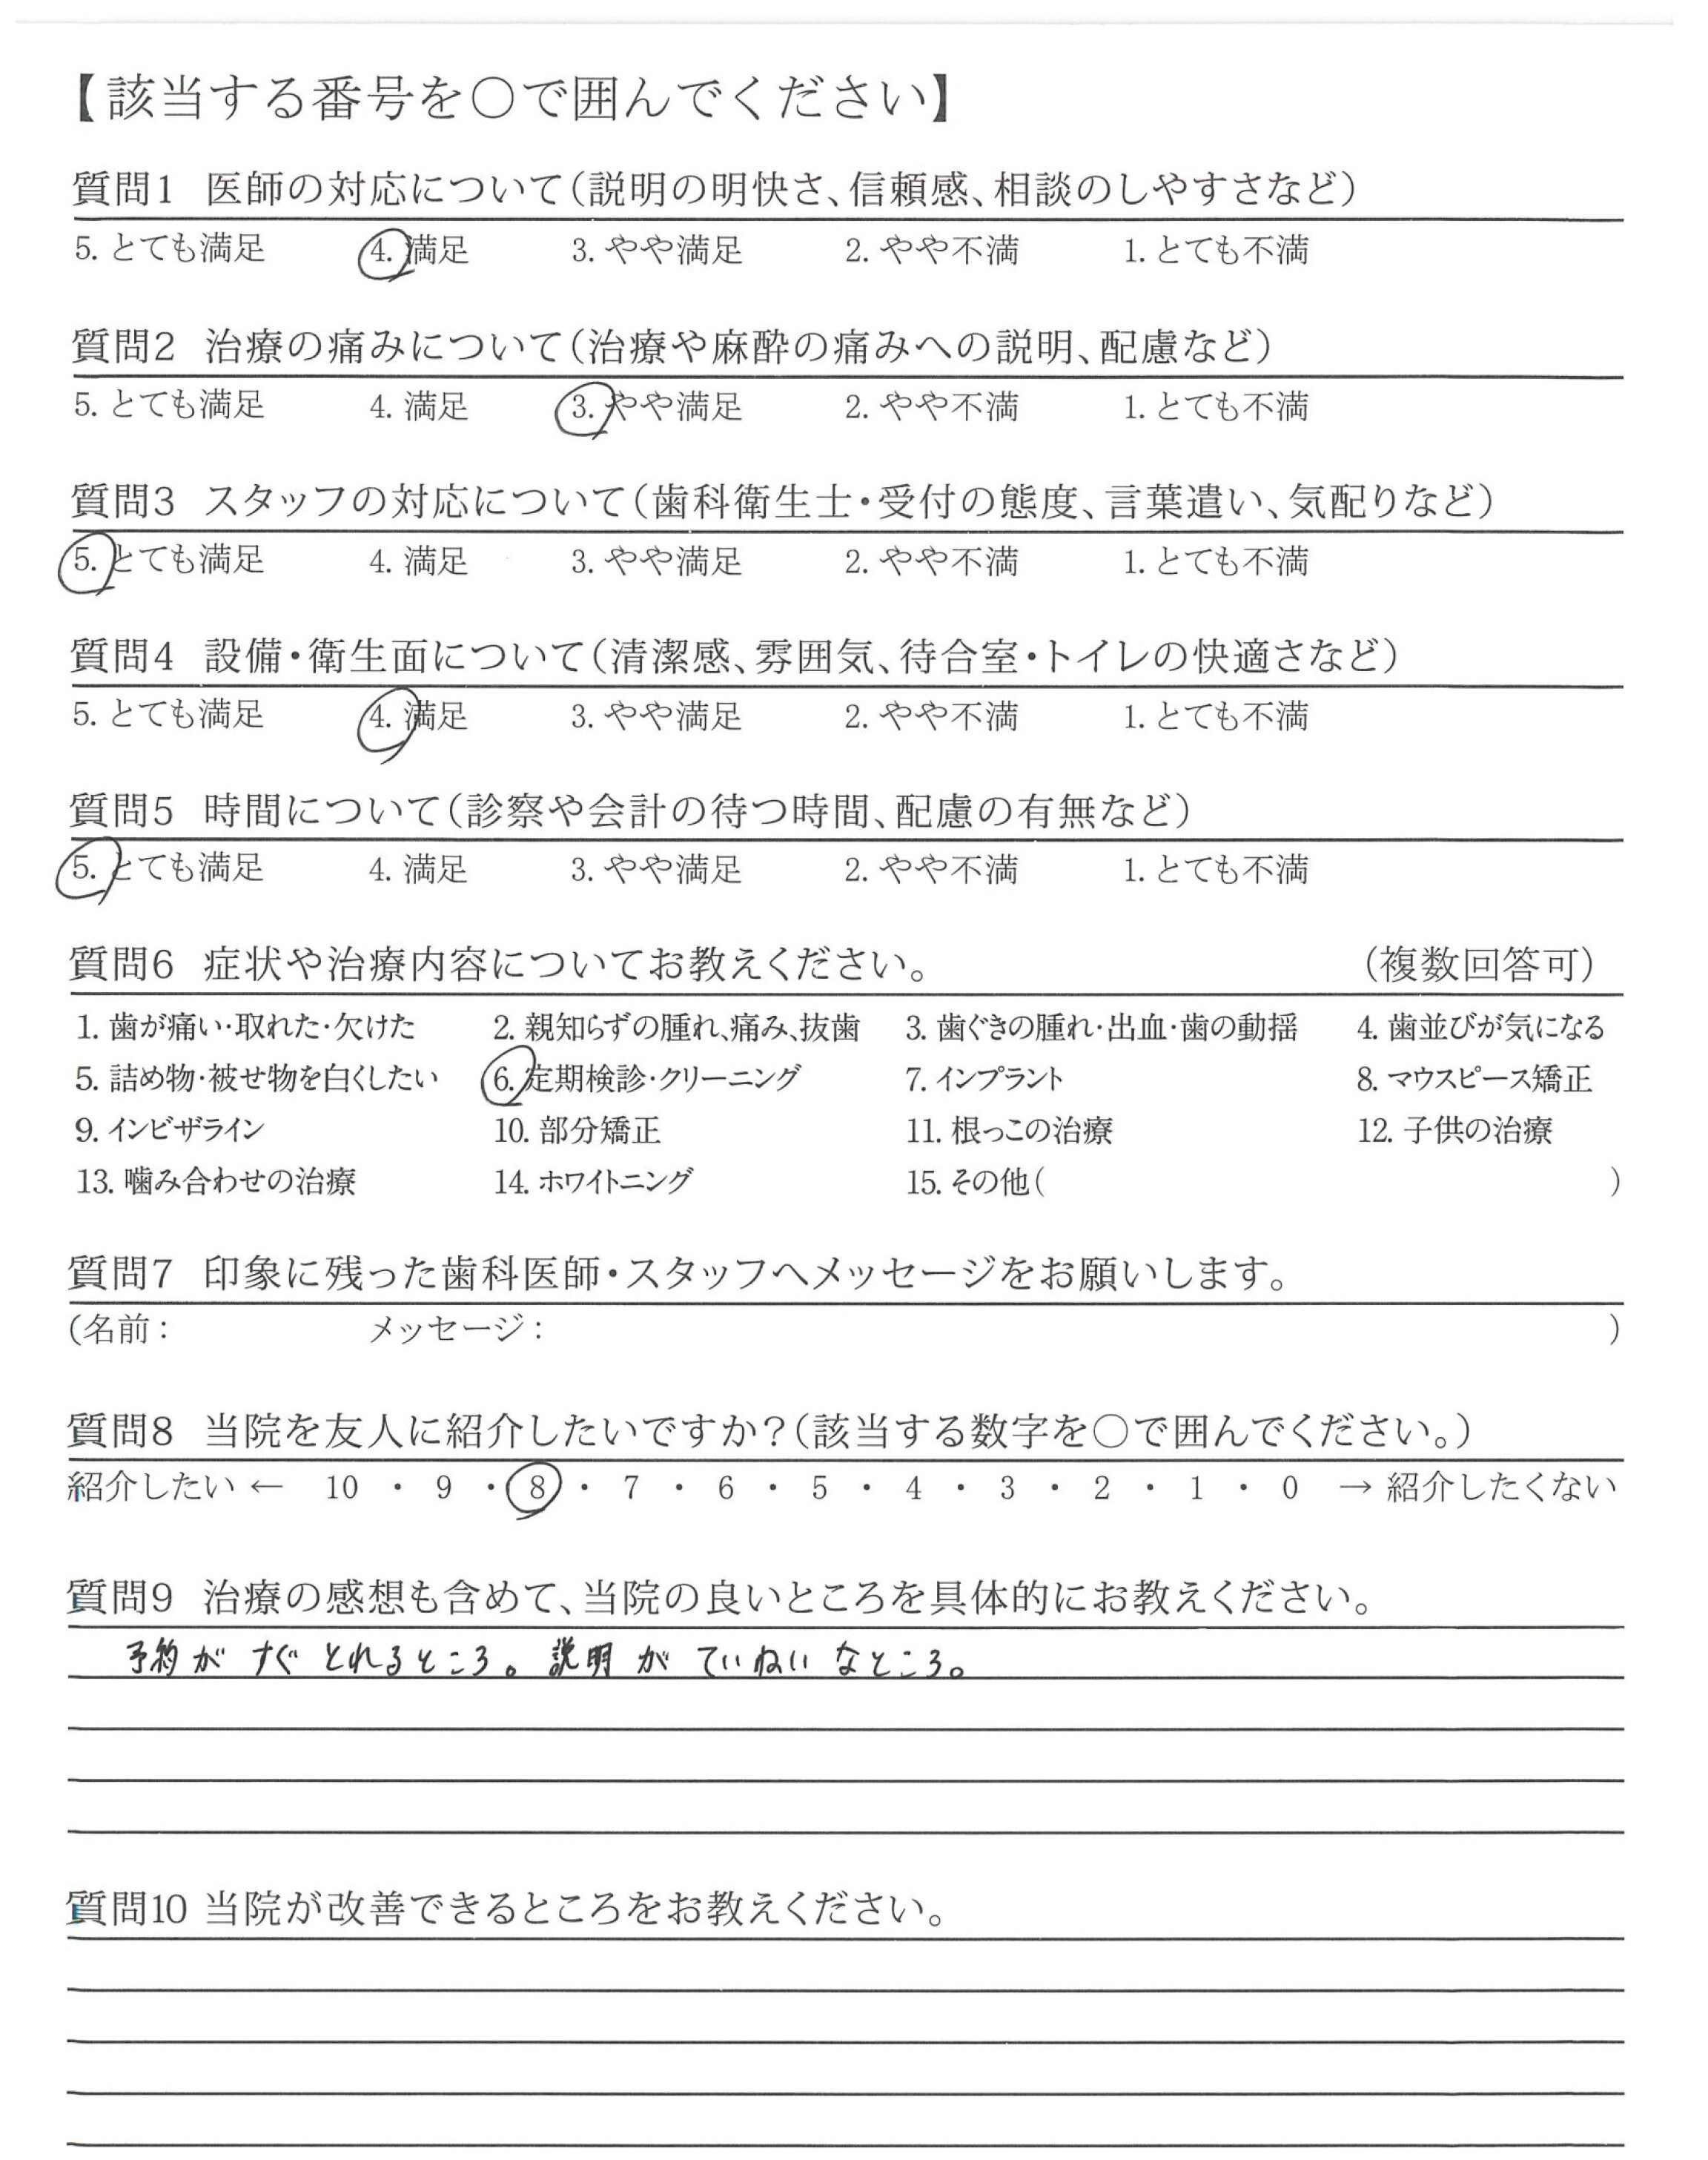 【該当する番号を○で囲んでください】
質問1 医師の対応について(説明の明快さ、信頼感、相談のしやすさなど)
5. とても満足 4. 満足 3. やや満足 2. やや不満 1. とても不満
質問2 治療の痛みについて(治療や麻酔の痛みへの説明、配慮など)
5. とても満足 4. 満足 3. やや満足 2. やや不満 1. とても不満
質問3 スタッフの対応について(歯科衛生士・受付の態度、言葉遣い、気配りなど)
5. とても満足 4. 満足 3. やや満足 2. やや不満 1. とても不満
質問4 設備・衛生面について(清潔感、雰囲気、待合室・トイレの快適さなど)
5. とても満足 4. 満足 3. やや満足 2. やや不満 1. とても不満
質問5 時間について(診察や会計の待つ時間、配慮の有無など)
5. とても満足 4. 満足 3. やや満足 2. やや不満 1. とても不満
質問6 症状や治療内容についてお教えください。 (複数回答可)
1. 歯が痛い・取れた・欠けた 2. 親知らずの腫れ、痛み、抜歯 3. 歯ぐきの腫れ・出血・歯の動揺 4. 歯並びが気になる
5. 詰め物・被せ物を白くしたい 6. 定期検診・クリーニング 7. インプラント 8. マウスピース矯正
9. インビザライン 10. 部分矯正 11. 根っこの治療 12. 子供の治療
13. 噛み合わせの治療 14. ホワイトニング 15. その他( )
質問7 印象に残った歯科医師・スタッフへメッセージをお願いします。
(名前: メッセージ: )
質問8 当院を友人に紹介したいですか?(該当する数字を○で囲んでください。)
紹介したい ← 10 ・ 9 ・ 8 ・ 7 ・ 6 ・ 5 ・ 4 ・ 3 ・ 2 ・ 1 ・ 0 → 紹介したくない
質問9 治療の感想も含めて、当院の良いところを具体的にお教えください。
予約がすぐとれるところ。説明がていねいなところ。
質問10 当院が改善できるところをお教えください。